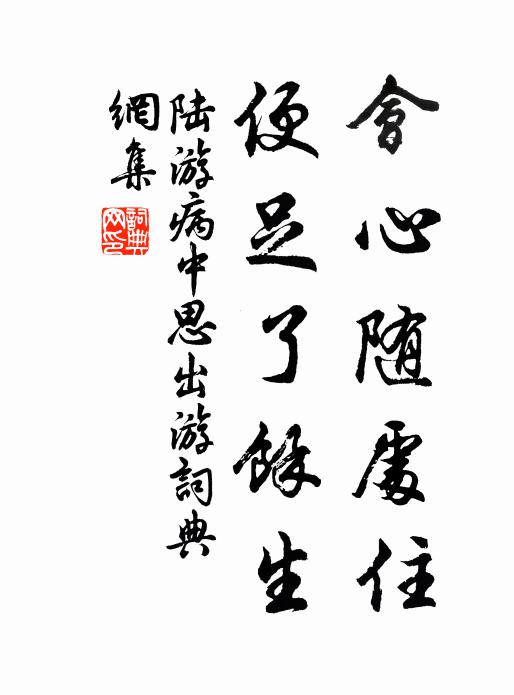 會心随處住
便足了餘生
陆游病中思出游詞典
網集
詞典网印